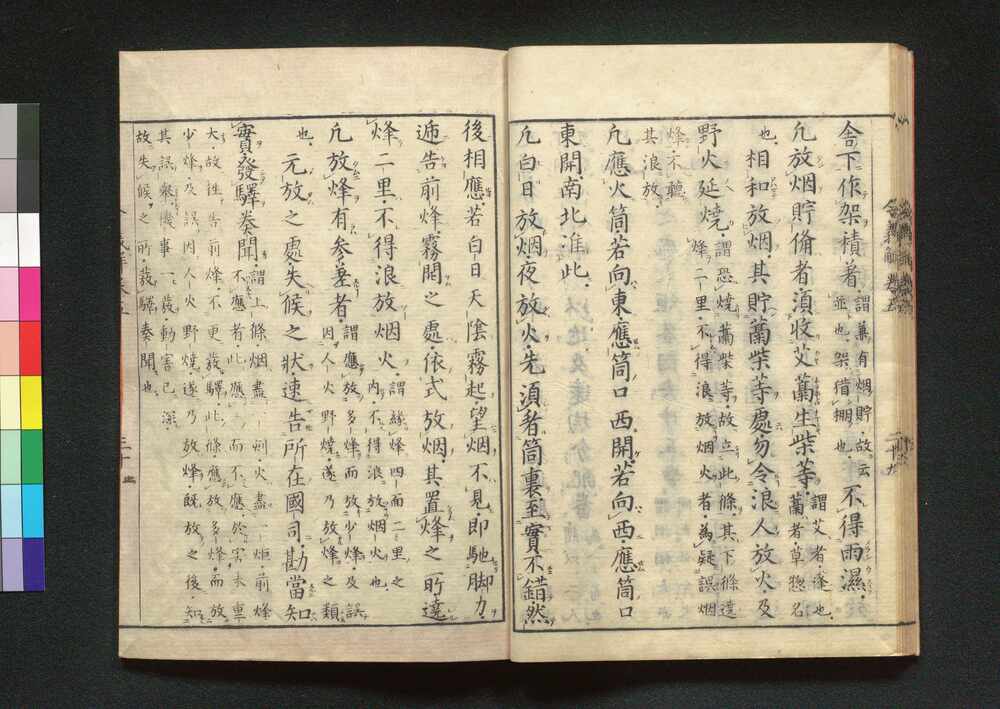 舎下作架積著。謂並有烟貯。故云並也。架猶棚也。不得雨濕。
凢放烟貯俻者。湏收艾藁生柴等。謂艾者蓬也。藁者草惣名
也。相和放烟。其貯藁柴等處。勿令浪人放火。及
野火延燒。謂恐燒藁柴等。故立此條。其下條遶烽二里。不得浪放烟火者。為疑誤烟
烽。不聽其浪放。
凢應火筒若向東。應筒口西開。若向西。應筒口
東開。南北准此。
凢白日放烟。夜放火。先湏看筒裏至實不錯。然
後相應。若白日天陰霧起。望烟不見。即馳脚力。
逓告前烽。霧開之處。依式放烟。其置烽之所。遶
烽二里。不得浪放烟火。謂縁烽四面二里之内。不得浪放烟火也。
凢放烽有參差者。謂應放多烽而放少烽。及誤因人火野燒。遂乃放烽之類
也。元放之處。失候之状。速告所在國司。勘當知
實。發驛奏聞。謂上條。烟盡一刻。火盡一炬。前烽不應者。此應而不應。於害未重。
大故。
少烽。及誤因人火野燒。遂乃放烽。既放之後。知
其誤。
故失候之所。發驛奏聞也。
二十九
三十